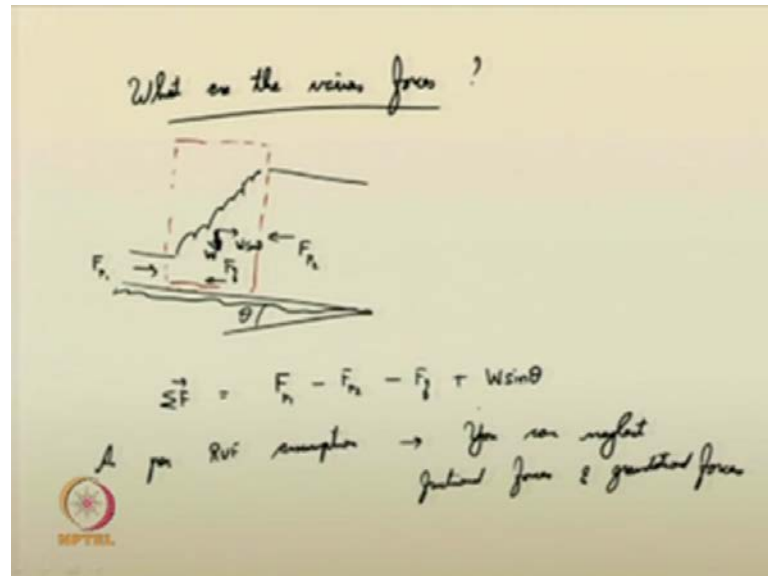 What are the various forces ?
W Wsinθ
Fp1 → ← Fp2
← Ff
θ
ΣF = Fp1 - Fp2 - Ff + Wsinθ
As per RVF assumption → You can neglect
frictional forces & gravitational forces
NPTEL